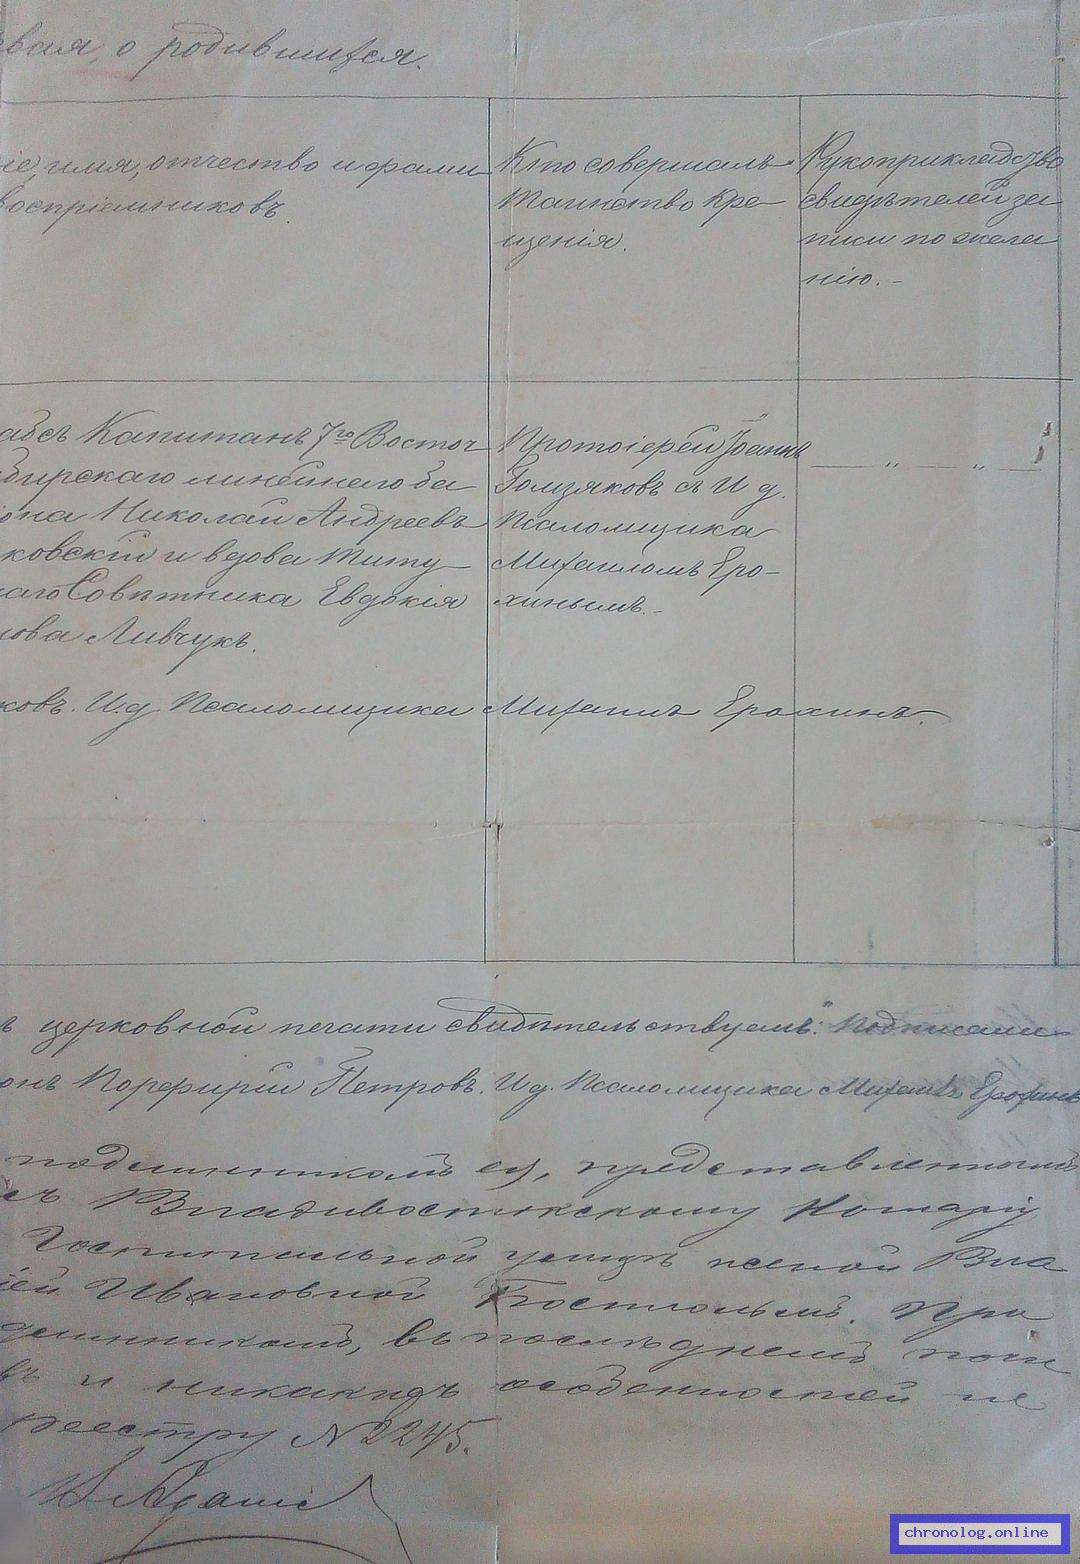 вая, о родившихся.
іе, имя, отчество и фами
воспріемниковъ.
Кто совершалъ
Таинство Кре
щенія.
Рукоприкладство
свидѣтелей за
писи по жела
нію. –
абсъ Капитанъ 7го Восточ
бирскаго линейнаго ба
іона Николай Андреевъ
ковскій и вдова Титу
наго Совѣтника Евдокія
нова Ливчукъ.
Протоіерей Іоаннъ
Гомзяковъ съ И. д.
Псаломщика
Михаиломъ Еро–
хинымъ. –
— „ — „ —
ковъ. И. д. Псаломщика Михаилъ Ерохинъ.
ъ церковной печати свидѣтельствуемъ." Подписали
онъ Порфирій Петровъ. И. д. Псаломщика Михаилъ Ерохинъ
подлинникомъ ея, представленнымъ
съ Владивостокскому Нотарі
Госпитальной улицѣ женой Вла
іей Ивановной . При
длинникомъ, въ послѣднемъ почи
въ и никакихъ особенностей не
реестру N 2245.
chronolog.online